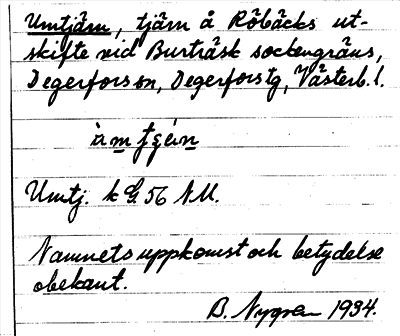 Umtjärn, tjärn å Röbäcks ut-
skifte vid Burträsk sockengräns,
Degerfors sn, Degerfors tg, Västerb. l.
Umtj. k G. 56 NU.
Namnets uppkomst och betydelse
obekant.
B. Nygren 1934.